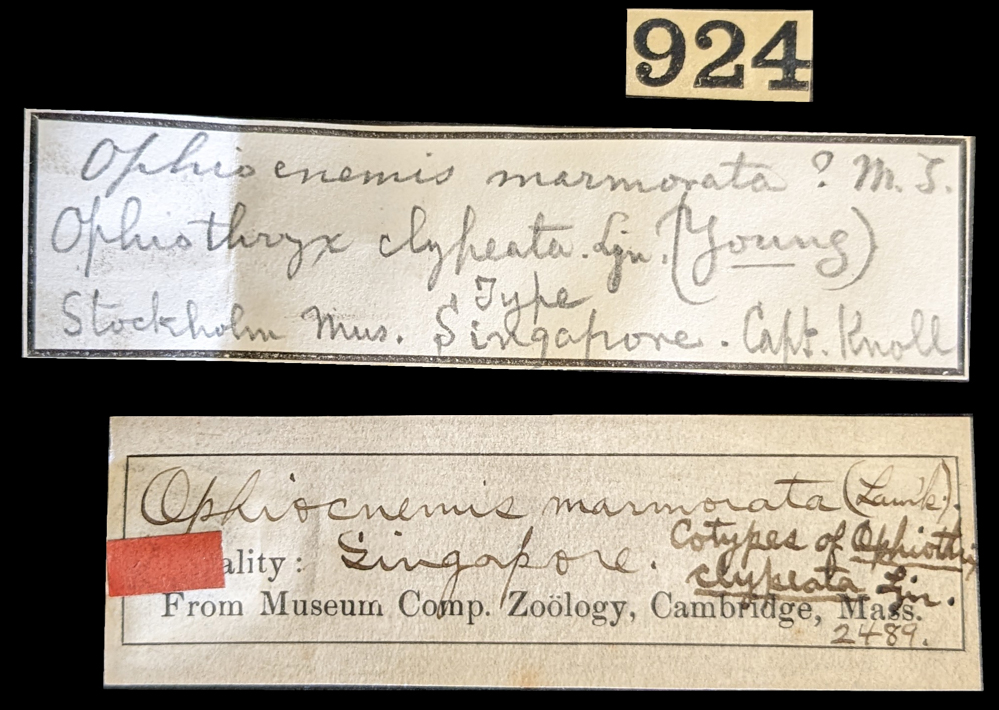 924
Ophiocnemis marmorata ? M. T.
Ophiothryx clypeata. Ljn. (Young)
Type
Stockholm Mus. Singapore. Capt. Knoll
Ophiocnemis marmorata (Lamk).
Cotypes of Ophiothrix
ality: Singapore.
clypeata Ljn.
From Museum Comp. Zoölogy, Cambridge, Mass.
2489.